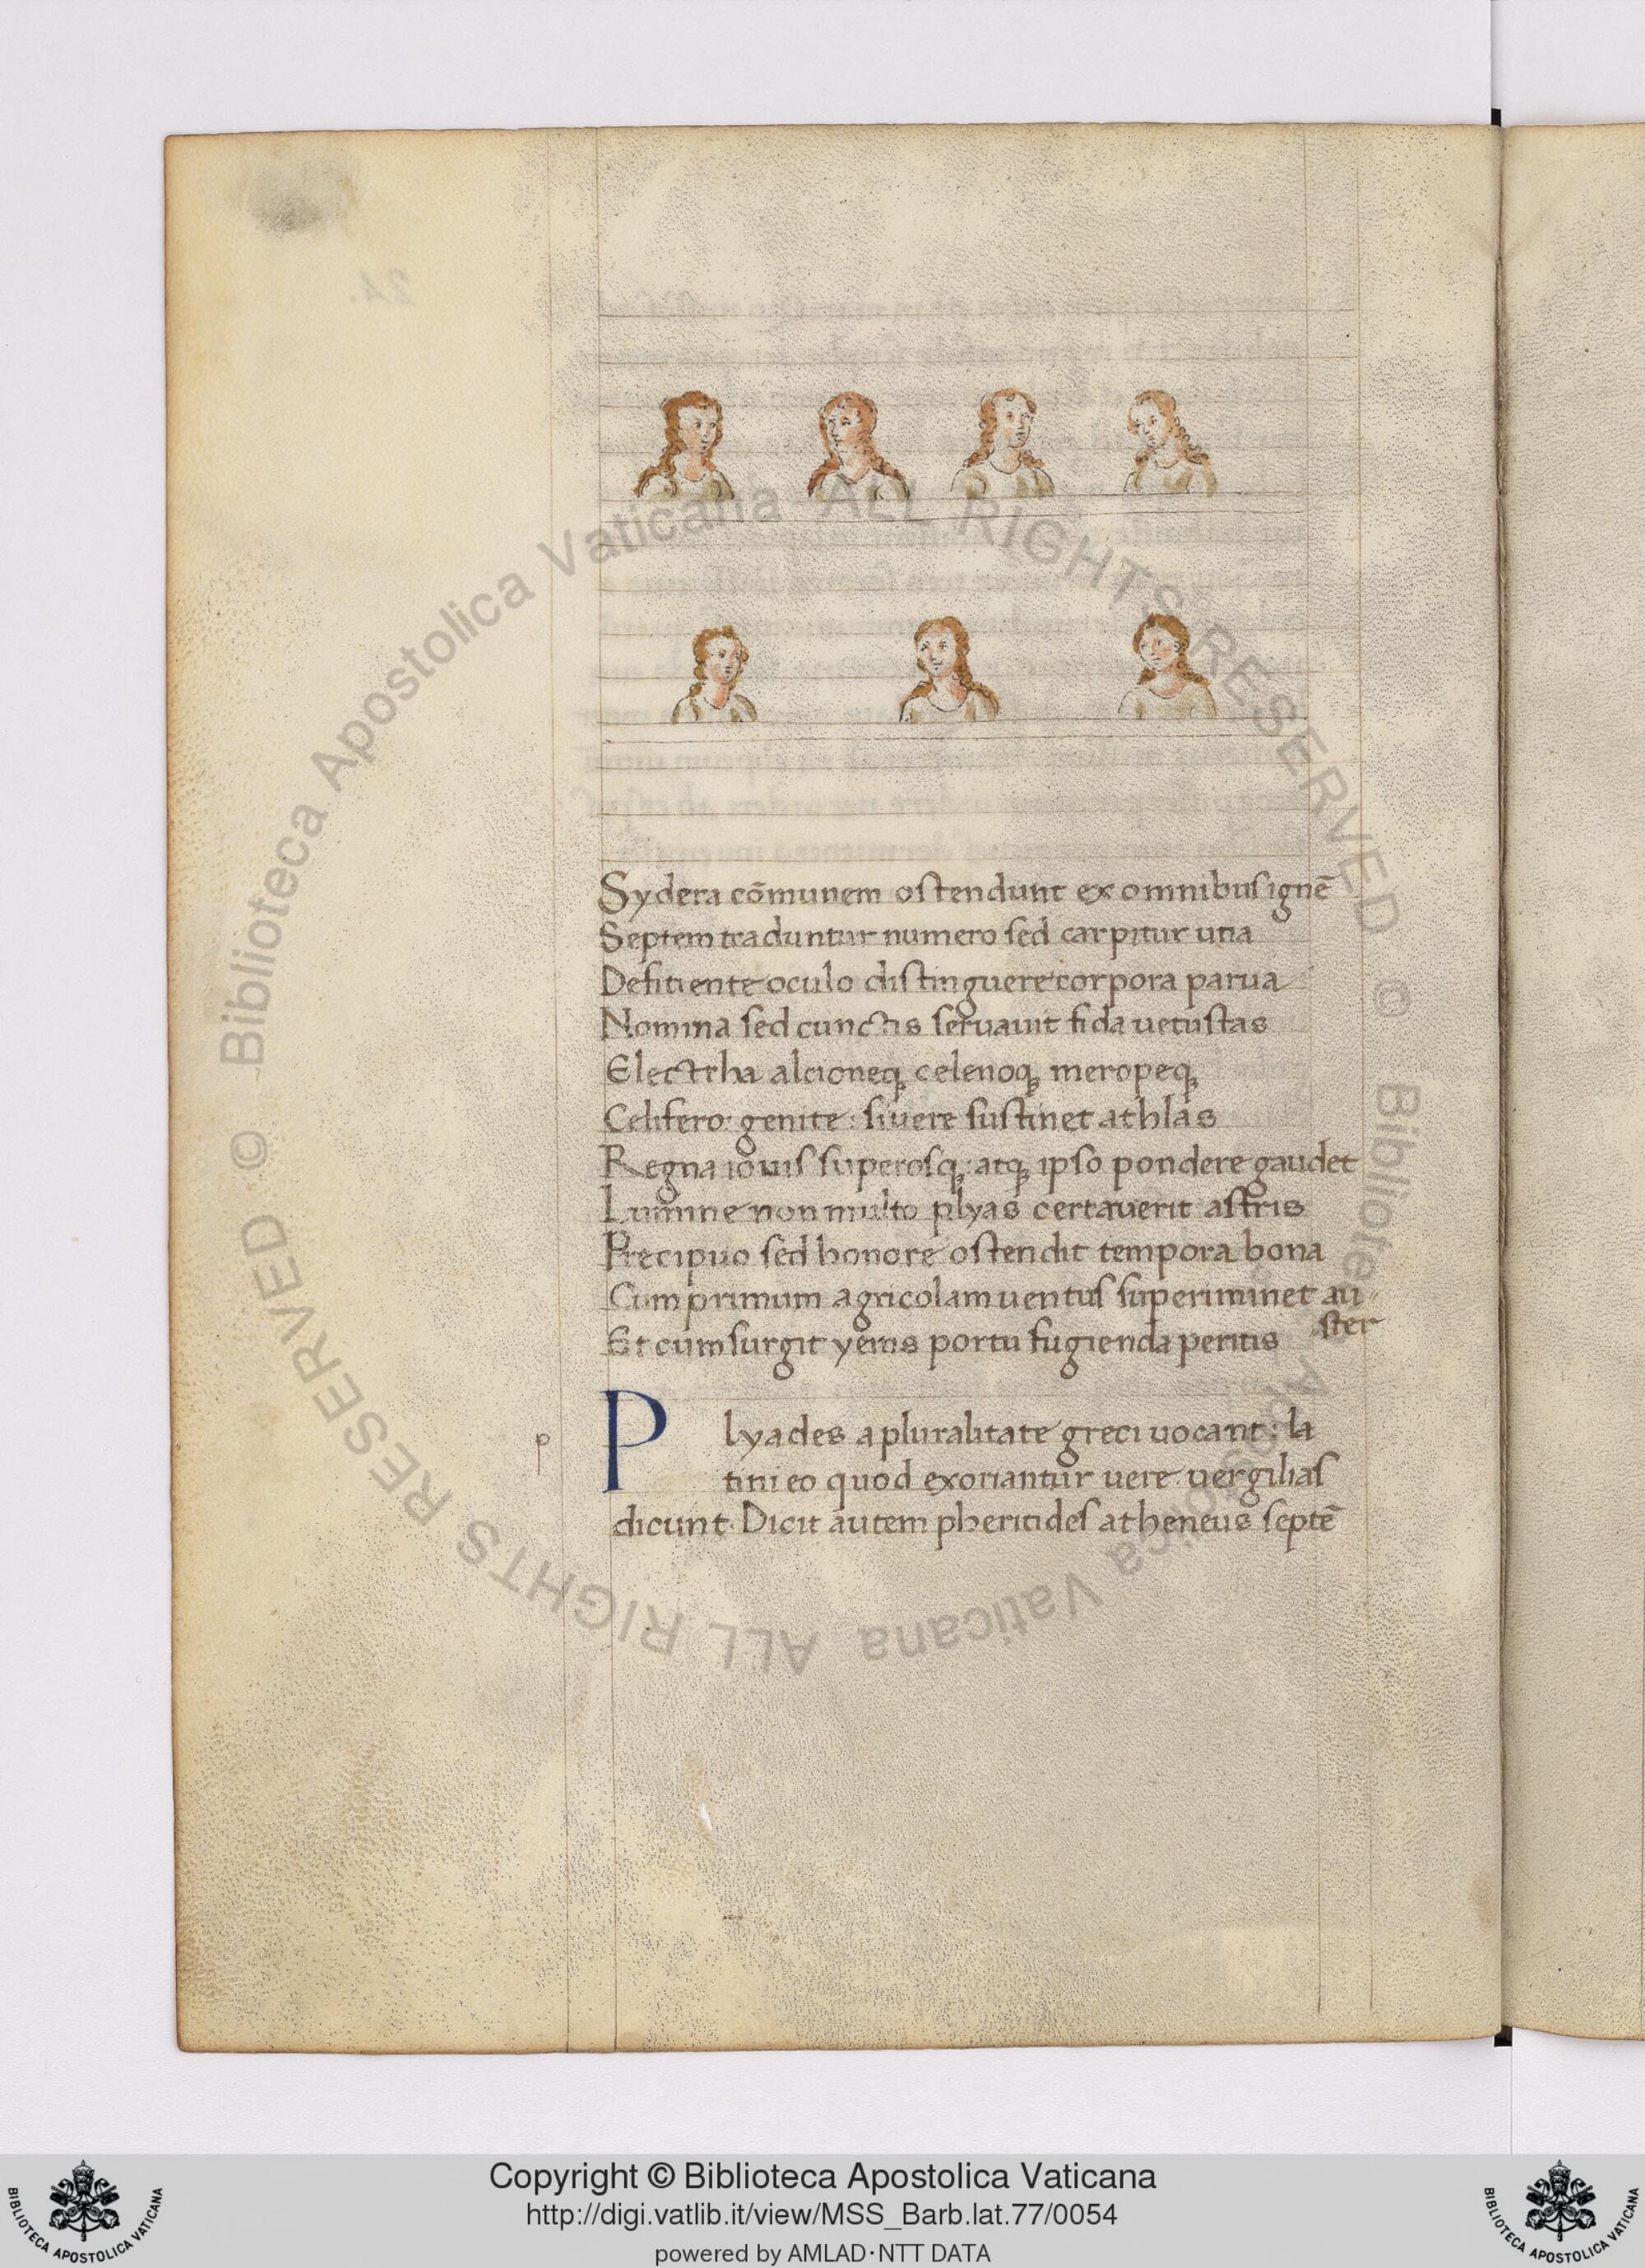 Sydera cōmunem ostendunt ex omnibus ignē
Septem traduntur numero sed carpitur una
Defitiente oculo distinguere corpora parua
Nomina sed cunctis seruauit fida uetustas
Electrha alcioneq; celenoq; meropeq;
Celifero genite: si uere sustinet athlas
Regna iouis superosq; atq; ipso pondere gaudet
Lumine non multo plyas certauerit astris
Precipuo sed honore ostendit tempora bona
Cum primum agricolam uentus superiminet au
ster
Et cum surgit yems portu fugienda peritis
p
Plyades a pluralitate greci uocant: la
tini eo quod exoriantur uere uergilias
dicunt. Dicit autem pheritides atheneus septē
© Biblioteca Apostolica Vaticana ALL RIGHTS RESERVED © Biblioteca Apostolica Vaticana ALL RIGHTS RESERVED
Copyright © Biblioteca Apostolica Vaticana
http://digi.vatlib.it/view/MSS_Barb.lat.77/0054
powered by AMLAD·NTT DATA
BIBLIOTECA APOSTOLICA VATICANA
BIBLIOTECA APOSTOLICA VATICANA